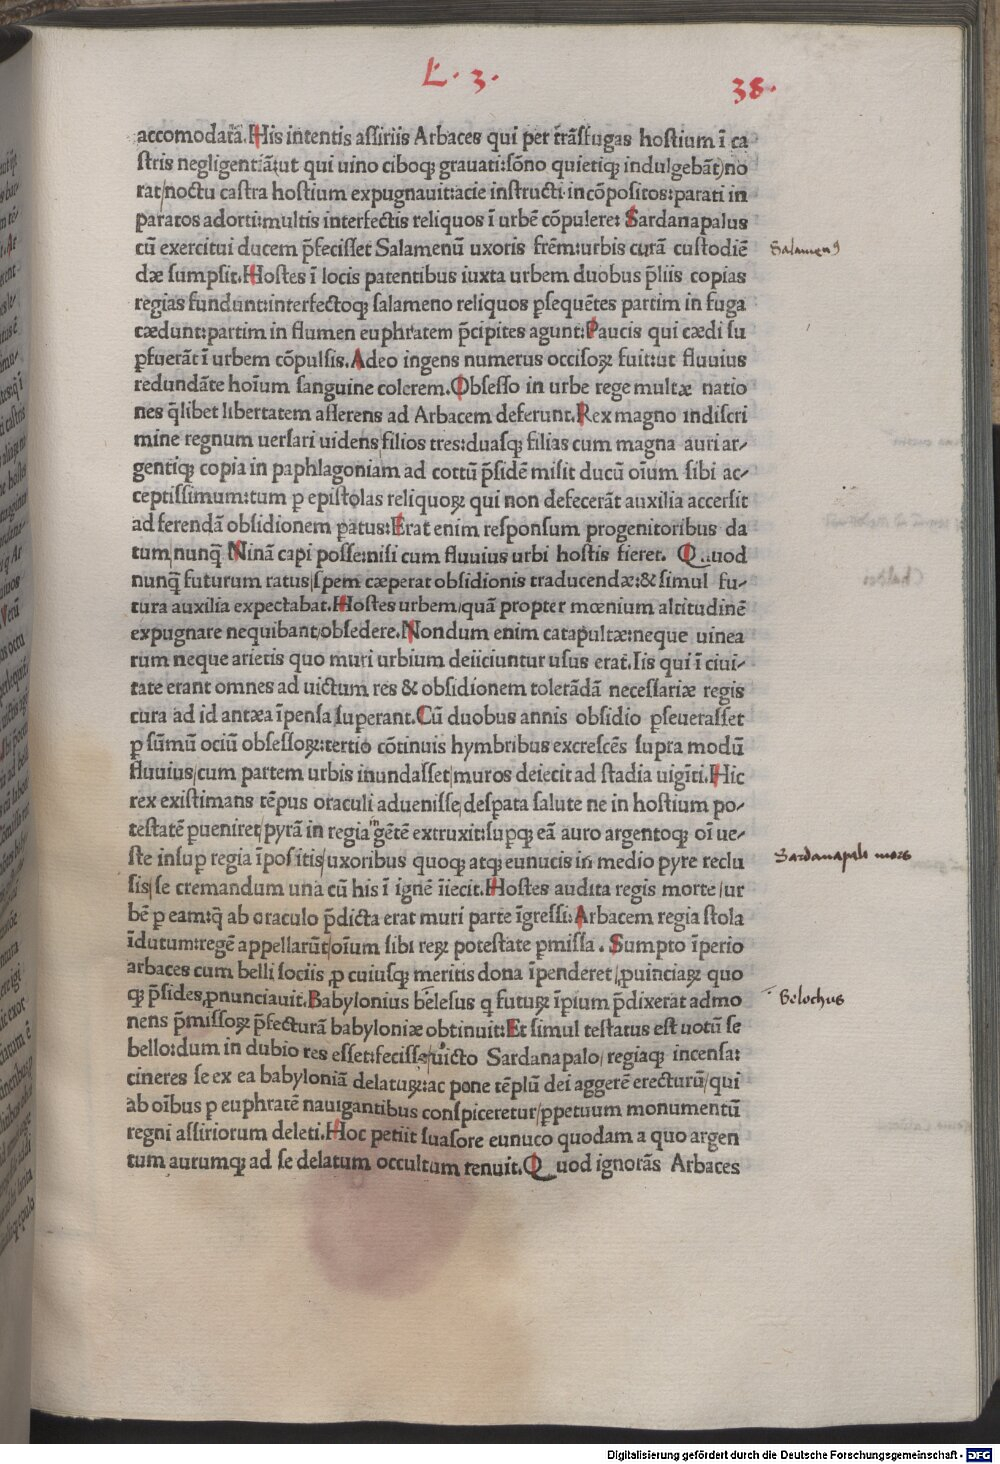 L. 3.
38.
accomodatā. His intentis assiriis Arbaces qui per trāsfugas hostium ī ca
stris negligentiā:ut qui uino ciboq; grauati:sōno quietiq; indulgebāt/no
rat/noctu castra hostium expugnauit:acie instructi incōpositos:parati in
paratos adorti:multis interfectis reliquos ī urbē cōpulere: Sardanapalus
cū exercitui ducem p̄fecisset Salamenū uxoris frēm:urbis curā custodiē
Salamenꝰ
dæ sumpsit. Hostes ī locis patentibus iuxta urbem duobus p̄liis copias
regias fundunt:interfectoq; salameno reliquos ꝑsequētes partim in fuga
cædunt:partim in flumen euphratem p̄cipites agunt: Paucis qui cædi su
ꝑfuerāt ī urbem cōpulsis. Adeo ingens numerus occisoꝝ fuit:ut fluuius
redundāte hoīum sanguine colorem. Obsesso in urbe rege multæ natio
nes q̄libet libertatem asserens ad Arbacem deferunt. Rex magno indiscri
mine regnum uersari uidens filios tres:duasq; filias cum magna auri ar-
gentiq; copia in paphlagoniam ad cottū p̄sidē misit ducū oīum sibi ac-
ceptissimum:tum ꝑ epistolas reliquoꝝ qui non defecerāt auxilia accersit
ad ferendā obsidionem ꝑatus: Erat enim responsum progenitoribus da
tum/nunq̄ Ninā capi posse:nisi cum fluuius urbi hostis fieret. Quod
nunq̄ futurum ratus/spem cæperat obsidionis traducendæ:& simul fu-
tura auxilia expectabat. Hostes urbem/quā propter mœnium altitudinē
expugnare nequibant/obsedere. Nondum enim catapultæ:neque uinea
rum neque arietis quo muri urbium deiiciuntur usus erat. Iis qui ī ciui-
tate erant omnes ad uictum res & obsidionem tolerādā necessariæ regis
cura ad id antæa īpensa superant. Cū duobus annis obsidio ꝑseuerasset
ꝑ sūmū ociū obsessoꝝ:tertio cōtinuis hymbribus excrescēs supra modū
fluuius/cum partem urbis inundasset/muros deiecit ad stadia uigīti. Hic
rex existimans tēpus oraculi aduenisse/desꝑata salute ne in hostium po-
testatē ꝑueniret/pyrā in regia īgētē extruxit:suꝑq; eā auro argentoq; oī ue-
ste insuꝑ regia īpositis/uxoribus quoq; atq; eunucis in medio pyre reclu
Sardanapali mors
sis/se cremandum una cū his ī ignē īiecit. Hostes audita regis morte/ur
bē ꝑ eam:q̄ ab oraculo p̄dicta erat muri parte īgressi: Arbacem regia stola
īdutum:regē appellarūt/oīum sibi reꝝ potestate ꝑmissa. Sumpto īperio
arbaces cum belli sociis ꝓ cuiusq; meritis dona īpenderet/ꝓuinciaꝝ quo
q; p̄sides ꝓnunciauit. Babylonius belesus q futuꝝ īpium p̄dixerat admo
Belochus
nens p̄missoꝝ p̄fecturā babyloniæ obtinuit: Et simul testatus est uotū se
bello:dum in dubio res esset:fecisse/uicto Sardanapalo/regiaq; incensa:
cineres se ex ea babyloniā delatuꝝ:ac pone tēplū dei aggerē erecturū/qui
ab oībus ꝑ euphratē nauigantibus conspiceretur/ꝑpetuum monumentū
regni assiriorum deleti. Hoc petiit suasore eunuco quodam a quo argen
tum aurumq; ad se delatum occultum tenuit. Quod ignorās Arbaces
Digitalisierung gefördert durch die Deutsche Forschungsgemeinschaft - DFG